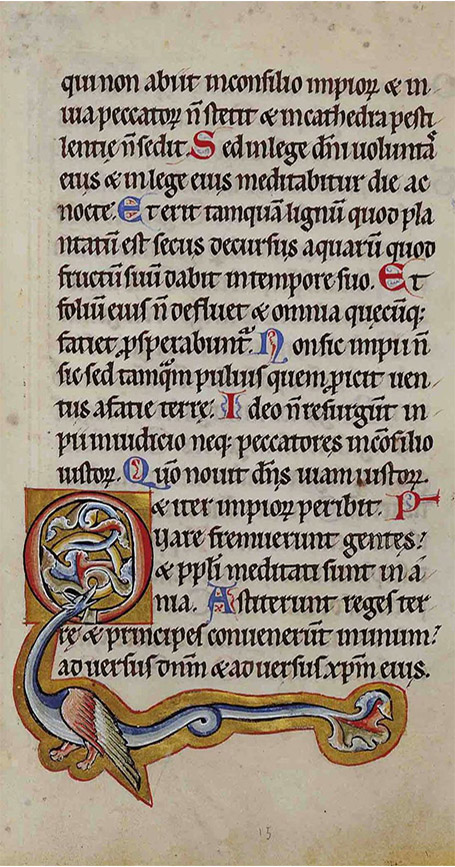 qui non abiit inconsilio impioꝝ & in
uia peccatoꝝ n̄ stetit & incathedra pesti
lentie n̄ sedit. Sed inlege dn̄i uoluntā
eius & inlege eius meditabitur die ac
nocte. Et erit tamquā lignū quod pla
ntatū est secus decursus aquarū quod
fructū suū dabit intempore suo. Et
foliū eius n̄ defluet & omnia quecūq;
faciet ꝓsperabunt̄. Non sic impii n̄
sic sed tamqm̄ puluis quem ꝓicit uen
tus afacie terre. Ideo n̄ resurgūt in
pii iniudicio neq; peccatores incōsilio
iustoꝝ. Qūo nouit dn̄s uiam iustoꝝ.
& iter impioꝝ peribit. P
Quare fremuerunt gentes?
& ppl̄i meditati sunt in ā
nia. Astiterunt reges ter
rę & principes conuenerūt inunum?
aduersus dnm̄ & aduersus xpm̄ eius.
15